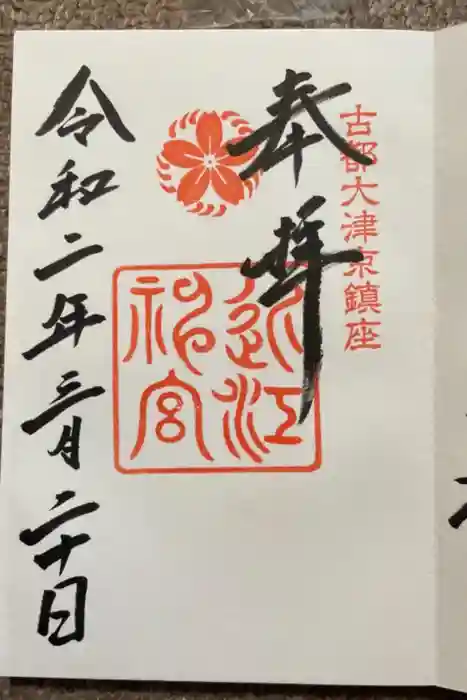 古都大津京鎮座
奉拝
近江
神宮
令和二年三月二十日